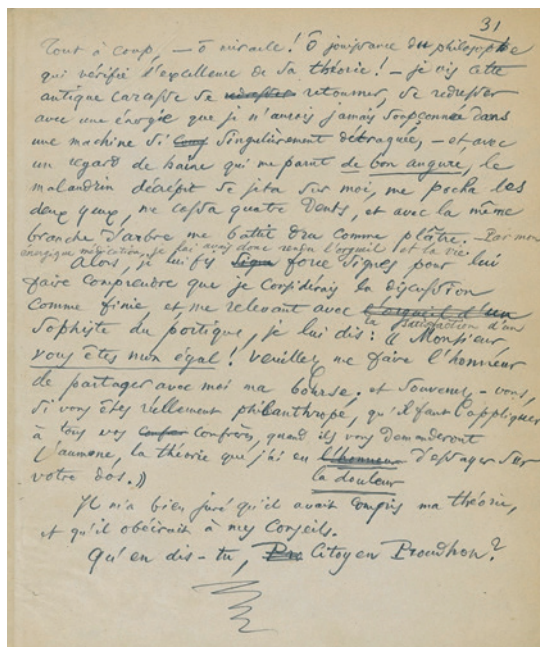 31
Tout à coup, — ô miracle! Ô jouissance du philosophe
qui vérifie l'excellence de sa théorie! — je vis cette
antique carcasse se retourner, se redresser
avec une énergie que je n'aurais jamais soupçonnée dans
une machine si singulièrement détraquée, — et avec
un regard de haine qui me parut de bon augure, le
malandrin décrépit se jeta sur moi, me pocha les
deux yeux, me cassa quatre dents, et avec la même
branche d'arbre me battit dru comme plâtre. — Par mon
énergique médication, je lui avais donc rendu l'orgueil et la vie.
Alors, je lui fis force signes pour lui
faire comprendre que je considérais la discussion
comme finie et me relevant avec l'orgueil d'un
la satisfaction d'un
sophiste du portique, je lui dis: « Monsieur,
vous êtes mon égal! Veuillez me faire l'honneur
de partager avec moi ma bourse. et souvenez-vous,
si vous êtes réellement philanthrope, qu'il faut appliquer
à tous vos confrères, quand ils vous demanderont
l'aumône, la théorie que j'ai eu l'honneur d'essayer sur
la douleur
votre dos. »
Il m'a bien juré qu'il avait compris ma théorie,
et qu'il obéirait à mes conseils.
Qu'en dis-tu, Citoyen Proudhon?